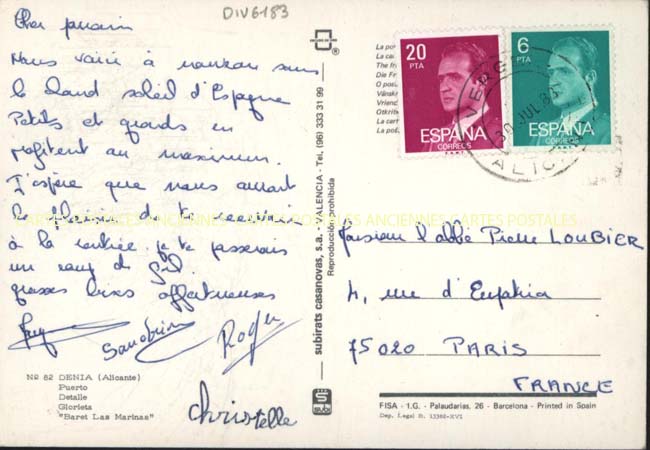 DIV6183
Cher parrain
Nous voici à nouveau sous
le chaud soleil d'Espagne
Petits et grands en
profitent au maximum.
J'espère que nous aurons
le plaisir de te recevoir
à la rentrée. je te passerais
un coup de fil.
grosses bises affectueuses
Sandrine
Roger
Christelle
Nº 82 DENIA (Alicante)
Puerto
Detalle
Glorieta
"Baret Las Marinas"
subirats casanovas, s.a. - VALENCIA - Tel. (96) 333 31 99
Reproducción prohibida
La po
La ca
The fr
Die Fr
O posi
Vänsk
Vrienc
Otkrit
La cart
La poš
20
PTA
ESPAÑA
CORREOS
6
PTA
ESPAÑA
CORREOS
30 JUL 84
ALIC
Monsieur l'abbé Pierre LOUBIER
4, rue d'Eupatoria
75020 PARIS
FRANCE
FISA - I.G. - Palaudarias, 26 - Barcelona - Printed in Spain
Dep. Legal B. 13382-XVI
CARTES POSTALES ANCIENNES CARTES POSTALES ANCIENNES CARTES POSTALES